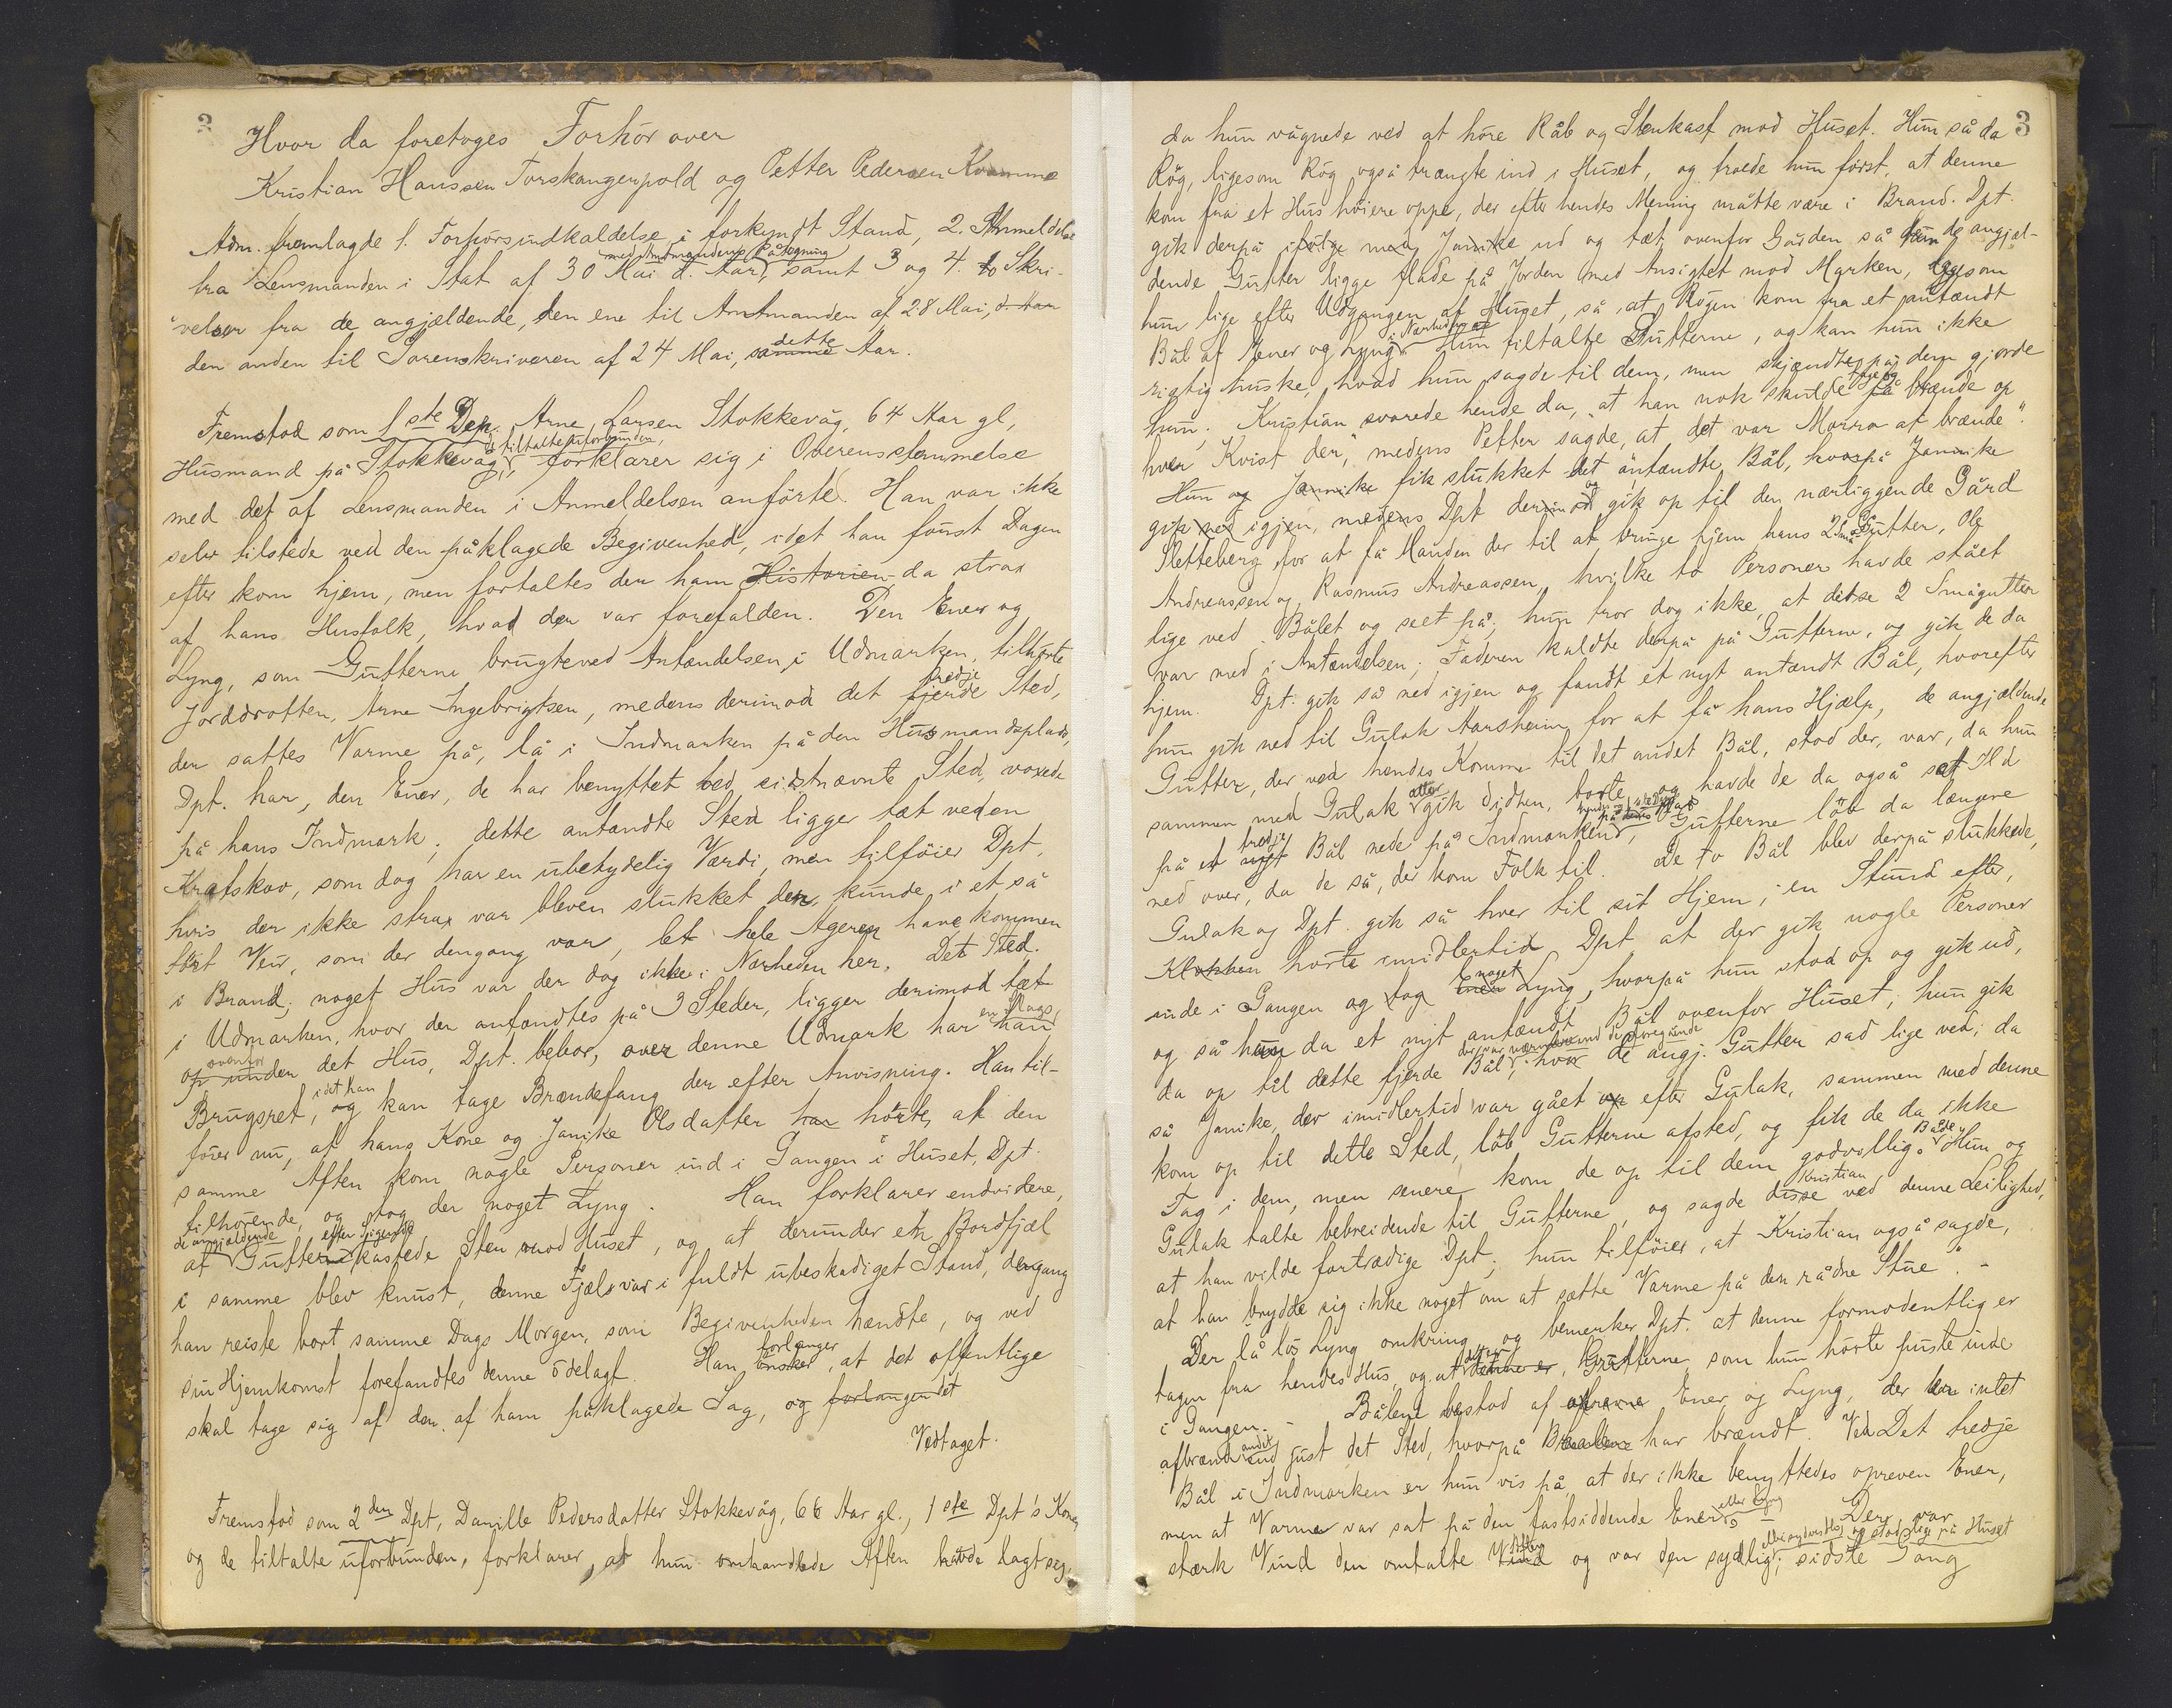 2
Hvor da foretoges Forhör over
Kristian Hanssen Torskangerpold og Petter Pedersen Kvamme
Adm. fremlagde 1. Forhörsindkaldelse i forkyndt Stand, 2. Anmeldelse
med Amtmandens Påtegning
fra Lensmanden i Stat af 30 Mai d. Aar, samt 3 og 4. to Skri-
velser fra de angjældende, den ene til Amtmanden af 28 Mai, d. Aar
den anden til Sorenskriveren af 24 Mai, samme dette Aar.
Fremstod som 1ste Dep. Arne Larsen Stokkevåg, 64 Aar gl,
de tiltalte uforbunden,
Husmand på Stokkevåg, forklarer sig i Overensstemmelse
med det af Lensmanden i Anmeldelsen anförte. Han var ikke
selv tilstede ved den påklagede Begivenhed, idet han först Dagen
efter kom hjem, men fortaltes der ham Historien da strax
af hans Husfolk, hvad der var forefalden. Den Ener og
Lyng, som Gutterne brugte ved Antændelsen i Udmarken, tilhörte
Jorddrotten, Arne Ingebrigtsen, medens derimod det fjerde tredje Sted,
der sattes Varme på, lå i Indmarken på den Husmandsplads,
Dpt. har, den Ener, de har benyttet ved sidstnævnte Sted, voxede
på hans Indmark; dette antændte Sted ligger tæt ved en
Kratskov, som dog har en ubetydelig Værdi, men tilföier Dpt,
hvis der ikke strax var bleven slukket der, kunde i et så
tört Veir, som der dengang var, let hele Ageren have kommen
i Brand; noget Hus var der dog ikke i Nærheden her. Det Sted
i Udmarken, hvor der antændtes på 3 Steder, ligger derimod tæt
op under ovenfor det Hus, Dpt. beboer, over denne Udmark har han en Slags
Brugsret, og idet han kan tage Brændefang der efter Anvisning. Han til-
föier nu, at hans Kone og Janike Olsdatter har hörte, at den
samme Aften kom nogle Personer ind i Gangen i Huset, Dpt.
tilhörende, og tog der noget Lyng. Han forklarer endvidere,
de angjældende efter Sigende
at Gutterne kastede Sten mod Huset, og at derunder en Bordfjæl
i samme blev knust, denne Fjæl var i fuldt ubeskadiget Stand, dengang
han reiste bort samme Dags Morgen, som Begivenheden hændte, og ved
sin Hjemkomst forefandtes denne ödelagt. Han önsker forlanger, at det offentlige
skal tage sig af den af ham påklagede Sag, og forlanger det
Vedtaget.
Fremstod som 2den Dpt, Danille Pedersdatter Stokkevåg, 66 Aar gl., 1ste Dpt's Kone,
og de tiltalte uforbunden, forklarer, at hun omhandlede Aften havde lagt sig,
3
da hun vågnede ved at höre Råb og Stenkast mod Huset. Hun så da
Rög, ligesom Rög også trængte ind i Huset, og troede hun först, at denne
kom fra et Hus höiere oppe, der efter hendes Mening måtte være i Brand. Dpt.
gik derpå ifölge med Janike ud og tæt ovenfor Gården så hun de angjæl-
dende Gutter ligge flade på Jorden med Ansigtet mod Marken, ligesom
hun lige efter Udgangen af Huset, så, at Rögen kom fra et antændt
Bål af Ener og Lyng i Nærheden. Hun tiltalte Gutterne, og kan hun ikke
rigtig huske, hvad hun sagde til dem, men skjændte på dem gjorde
hun. Kristian svarede hende da, "at han nok skulde få brænde op
hver Kvist der," medens Petter sagde, at det var Morro at brænde".
Hun og Jannike fik slukket det antændte Bål, hvorpå Jannike
gik ned igjen, medens Dpt derimod og gik op til den nærliggende Gård
Sletteberg for at få Manden der til at bringe hjem hans 2 små Gutter, Ole
Andreassen og Rasmus Andreassen, hvilke to Personer havde stået
lige ved Bålet og seet på; hun tror dog ikke, at disse 2 Smågutter
var med i Antændelsen; Faderen kaldte derpå på Gutterne, og gik de da
hjem. Dpt. gik så ned igjen og fandt et nyt antændt Bål, hvorefter
hun gik ned til Gulak Aarsheim for at få hans Hjælp, de angjældende
Gutter, der ved hendes Komme til det andet Bål, stod der, var, da hun
sammen med Gulak atter gik didhen, borte og havde de da også sat Ild
på et nyt tredje Bål nede på Indmarken, Gutterne löb da længere
ned over, da de så, der kom Folk til. De to Bål blev derpå slukkede,
Gulak og Dpt. gik så hver til sit Hjem; en Stund efter,
Klokken hörte imidlertid Dpt at der gik nogle Personer
inde i Gangen og tog Ener noget Lyng, hvorpå hun stod op og gik ud,
og så hun da et nyt antændt Bål ovenfor Huset; hun gik
der var nærmere end de foregående
da op til dette fjerde Bål, hvor de angj. Gutter sad lige ved; da
så Janike, der imidlertid var gået op efter Gulak, sammen med denne
kom op til dette Sted, löb Gutterne afsted, og fik de da ikke
Tag i dem, men senere kom de op til dem godvillig. Både Hun og
Gulak talte bebreidende til Gutterne, og sagde disse Kristian ved denne Leilighed,
at han vilde fortrædige Dpt; hun tilföier, at Kristian også sagde,
at han brydde sig ikke noget om at sætte Varme på den rådne Stue". -
Der lå lös Lyng omkring, og bemærker Dpt. at denne formodentlig er
tagen fra hendes Hus, og at det var denne er, Gutterne, som hun hörte puste inde
i Gangen. - Bålene bestod af afrevne Ener og Lyng, der er intet
afbrændt andet end just det Sted, hvorpå Baalene har brændt. Ved Det tredje
Bål i Indmarken er hun vis på, at der ikke benyttedes opreven Ener,
men at Varme var sat på den fastsiddende Ener eller Lyng. Der var
stærk Vind den omtalte Vind Aften og var den sydlig; sidste Gang
eller sydvestlig og stod lige på Huset